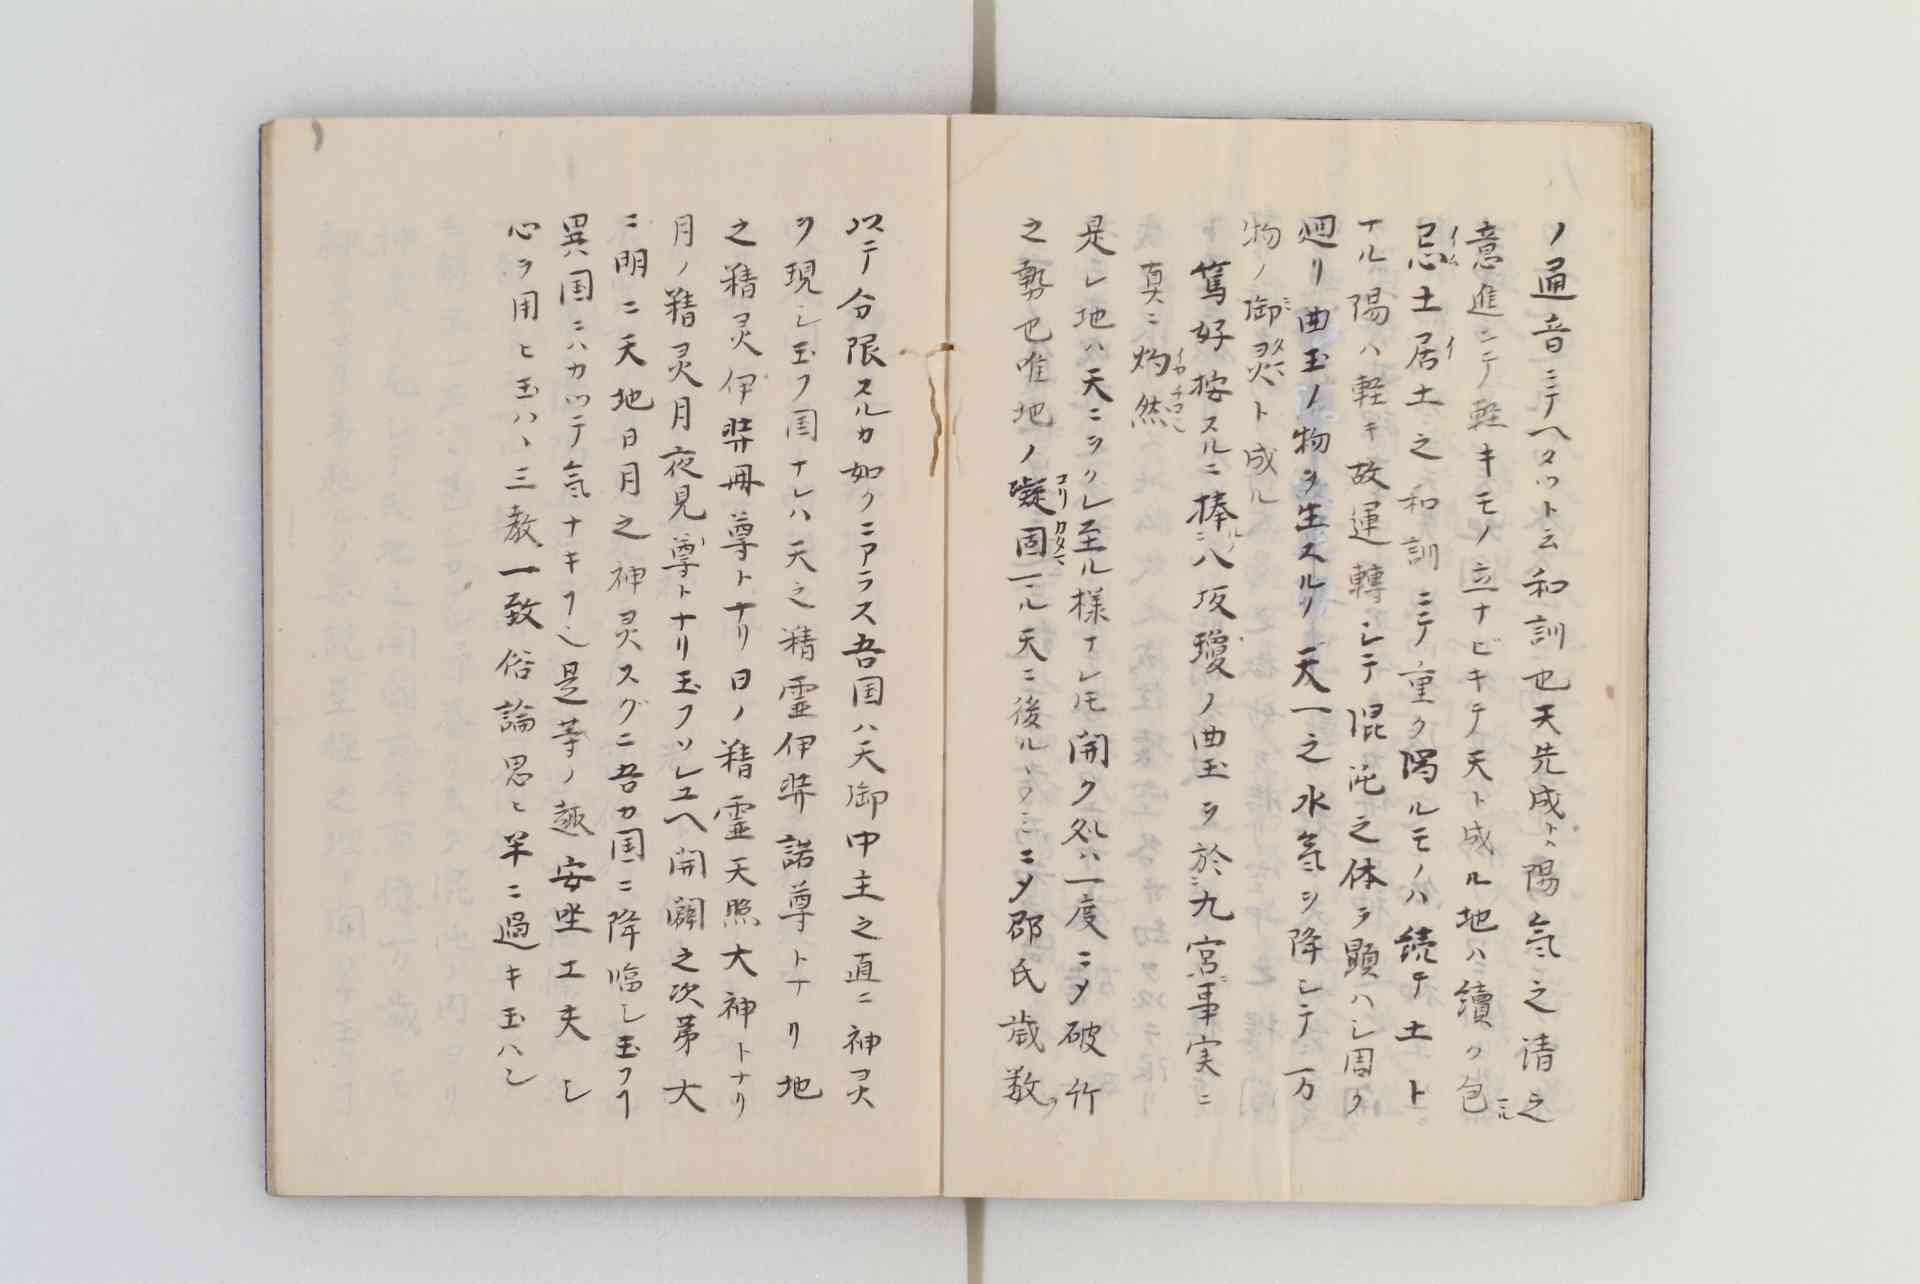 ノ通音ニテヘタツト云和訓也天先成トハ陽氣之清之
意進ニテ軽キモノ立ナビキテ天ト成ル地ハ續ク包ニル
忌土居土之和訓ニテ重ク濁ルモノハ続テ土ト
ナル陽ハ軽キ故運轉シテ混沌之体ヲ顕ハシ周ク
廻リ曲玉ノ物ヲ生スルヿ天一之水氣ヲ降シテ万
物ノ御灵ト成ル
篤好按スルニ捧八坂瓊ノ曲玉ヲ於九宮事実ニ
真ニ灼然
是レ地ハ天ニヲクレ至ル様ナレ𪜈開ク処ハ一度ニ〆破竹
之勢也唯地ノ礙固ル天ニ後ルヽノミニ〆郡氏歳数ヲ
以テ分限スルカ如クニアラス吾国ハ天御中主之直ニ神灵
ヲ現シ玉フ国ナレハ天之精霊伊弉諾尊トナリ地
之精灵伊弉冊尊トナリ日ノ精霊天照大神トナリ
月ノ精灵月夜見尊トナリ玉フソレユヘ開闢之次第大
ニ明ニ天地日月之神灵スグニ吾カ国ニ降臨シ玉フヿ
異国ニハカツテ氣ナキヿ也是等ノ趣安坐工夫シ
心ヲ用ヒ玉ハヽ三教一致俗論思ヒ半ニ過キ玉ハン